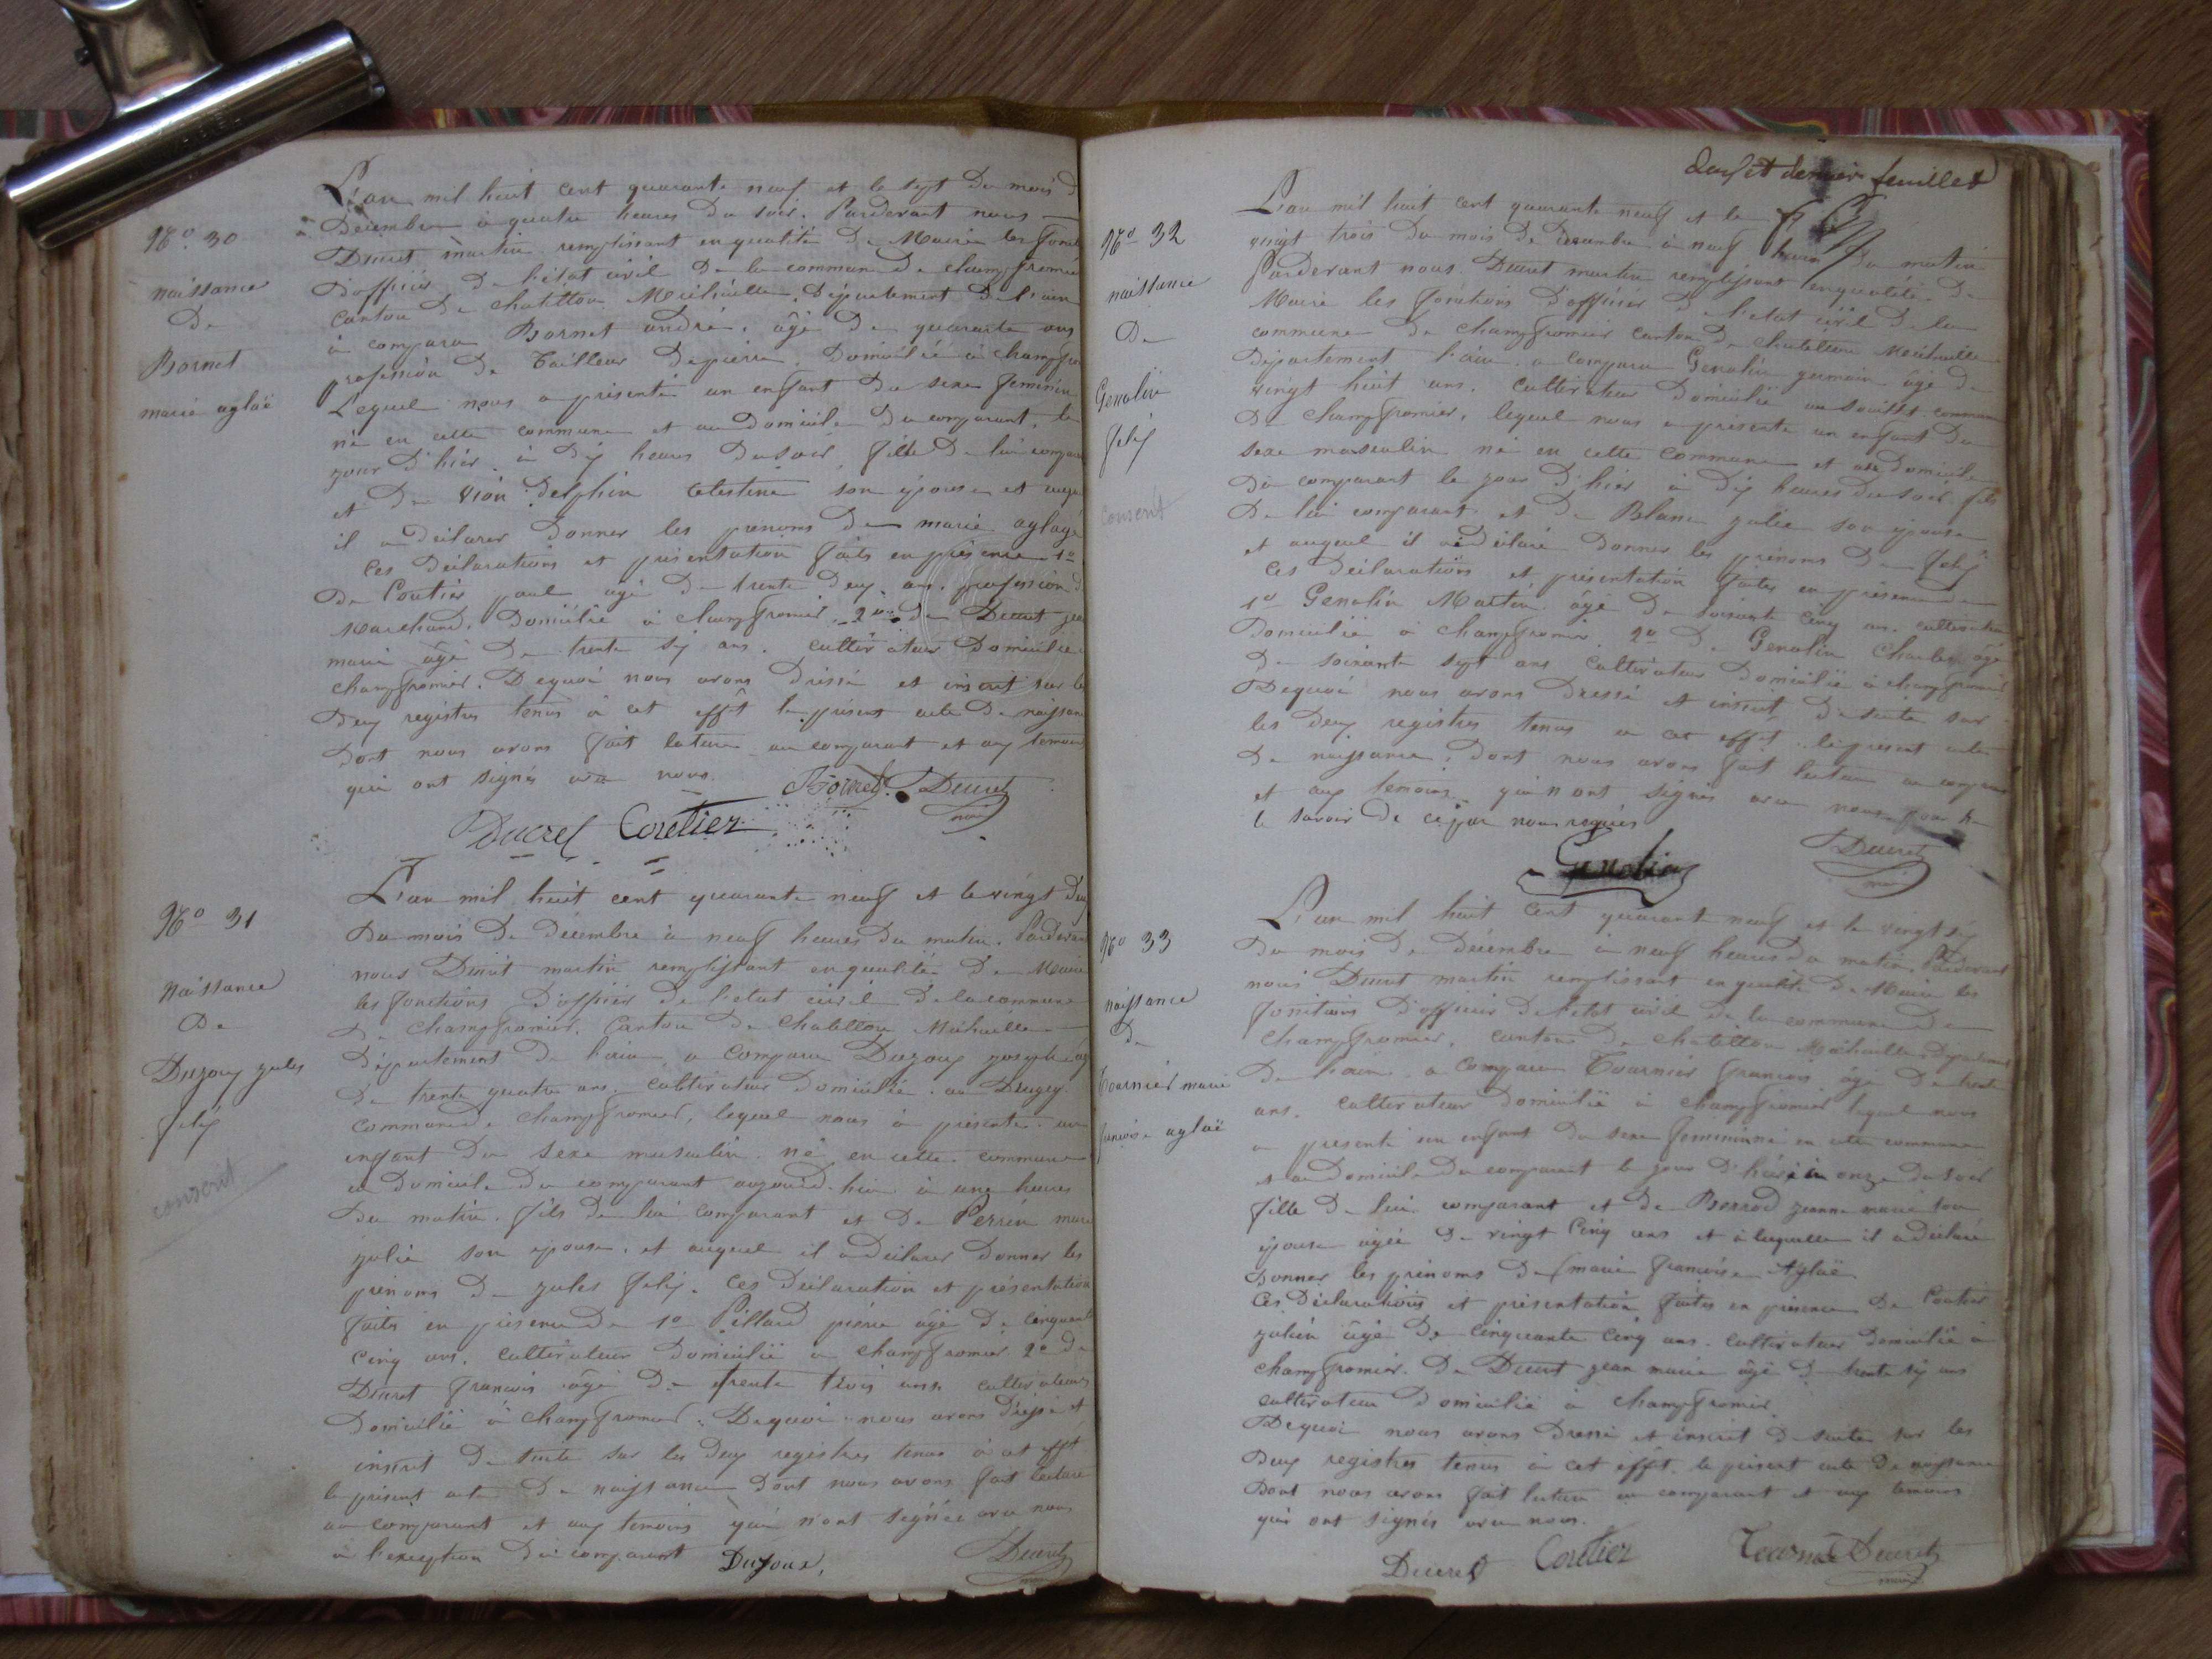 N.o 30
naissance
De
Bornet
marie aglaë
L'an mil huit cent quarante neuf et le sept Du mois d
Décembre à quatre heures Du soir. Pardevant nous
Ducret martin remplissant en qualité De Maire les fonct
D'officier De l'état civil De la commune De champfromier
canton De chatillon Michaille, Département De l'ain
à comparu Bornet andré, âgé De quarante ans
profession De Tailleur De pierre, Domicilié à champfro
Lequel nous a présenté un enfant Du sexe feminin
né en cette commune et au Domicile Du comparant, le
jour D'hier à dix heures Du soir, fille De lui compar
et De Vion Delphine Celestine son épouse et auqu
il a déclarer Donner les prenoms De marie aglaé
Ces Déclarations et présentation faits en présence 1o
De Coutier paul âgé De trente Deux ans, profession d
Marchand, Domicilié à champfromier, 2o De Ducret jean
marie âgé De trente six ans. cultivateur Domicilié à
champfromier. De quoi nous avons Dressé et inscrit sur les
Deux registres tenus à cet effet le présent acte De naissan
Dont nous avons fait lecture au comparant et aux temoins
qui ont signés avec nous. Bornet. Ducret
maire
Ducret Coutier
N.o 31
Naissance
De
Dujoux jules
felix
conscrit
L'an mil huit cent quarante neuf et le vingt Deux
Du mois De Décembre à neuf heures Du matin. Pardevan
nous Ducret martin remplissant en qualité De Maire
les fonctions D'officier De l'etat civil De la commune
De champfromier, Canton De Chatillon Michaille
Département De l'ain a comparu Dujoux joseph âgé
De trente quatre ans, cultivateur Domicilié au
commune De champfromier, lequel nous à présenté un
enfant Du sexe masculin né en cette commune
au Domicile Du comparant aujourd'hui à une heures
Du matin, fils De lui comparant et De Perrin marie
julie son epouse, et auquel il a déclarer Donner les
prénoms De jules felix. Ces Déclaration et présentation
faits en présence De 1o Pillard pierre âgé De cinquante
cinq ans, cultivateur Domicilié à champfromier 2o De
Ducret francois âgé De trente trois ans cultivateur
Domicilié à champfromier. De quoi nous avons Dressé et
inscrit De suite sur les Deux registres tenus à cet effet
le présent acte De naissance Dont nous avons fait lecture
au comparant et aux temoins qui n'ont signée avec nous
à l'exception Du comparant Dujoux, Ducret
maire
dernier feuillet
N.o 32
naissance
De
Genolin
felix
conscrit
L'an mil huit cent quarante neuf et le
vingt trois Du mois De Décembre à neuf heures Du matin
Pardevant nous Ducret martin remplissant en qualité De
Maire les fonctions D'officier De l'etat civil De la
commune De champfromier canton De chatillon Michaille
Département l'ain a comparu Genolin germain âgé De
vingt huit ans, cultivateur Domicilié commune
De champfromier, lequel nous a présenté un enfant Du
sexe masculin né en cette commune et au Domicile
Du comparant le jour D'hier à dix heures Du soir fils
De lui comparant et De Blanc julie son epouse
et auquel il a Déclaré Donner les prénoms De felix
Ces Déclarations et présentation faites en présence De
1o Genolin Martin âgé De soixante cinq ans cultivateur
Domicilié à champfromier 2o De Genolin Charles âgé
De soixante sept ans cultivateur Domicilié à champfromier
De quoi nous avons Dressé et inscrit De suite sur
les Deux registres tenus à cet effet le présent acte
De naissance. Dont nous avons fait lecture au comparant
et aux temoins qui n'ont signés avec nous pour ne
le savoir De ce par nous requis
Ducret
maire
Genolin
N.o 33
naissance
De
Tournier marie
francoise aglaë
L'an mil huit cent quarant neuf et le vingt six
Du mois De décembre à neuf heures Du matin, Pardevant
nous Ducret martin remplissant en qualité De Maire les
fonctions D'officier De l'etat civil De la commune De
champfromier, canton De chatillon Michaille Département
De l'ain a comparu Tournier francois âgé De trente
ans, cultivateur Domicilié à champfromier lequel nous
a présenté un enfant Du sexe feminin né en cette commune
et au Domicile Du comparant le jour D'hier à onze Du soir
fille De lui comparant et De Berrod jeanne marie son
épouse âgée De vingt cinq ans et à laquelle il a déclaré
Donner les prénoms De marie francoise Aglaë
Ces Déclarations et présentation faites en présence De Coutier
julien âgé De cinquante cinq ans cultivateur Domicilié à
champfromier. De Ducret jean marie âgé De trente six ans
cultivateur Domicilié à champfromier.
De quoi nous avons Dressé et inscrit De suite sur les
Deux registres tenus à cet effet le présent acte De naissance
Dont nous avons fait lecture au comparant et aux temoins
qui ont signés avec nous.
Ducret Coutier Tournier Ducret
maire